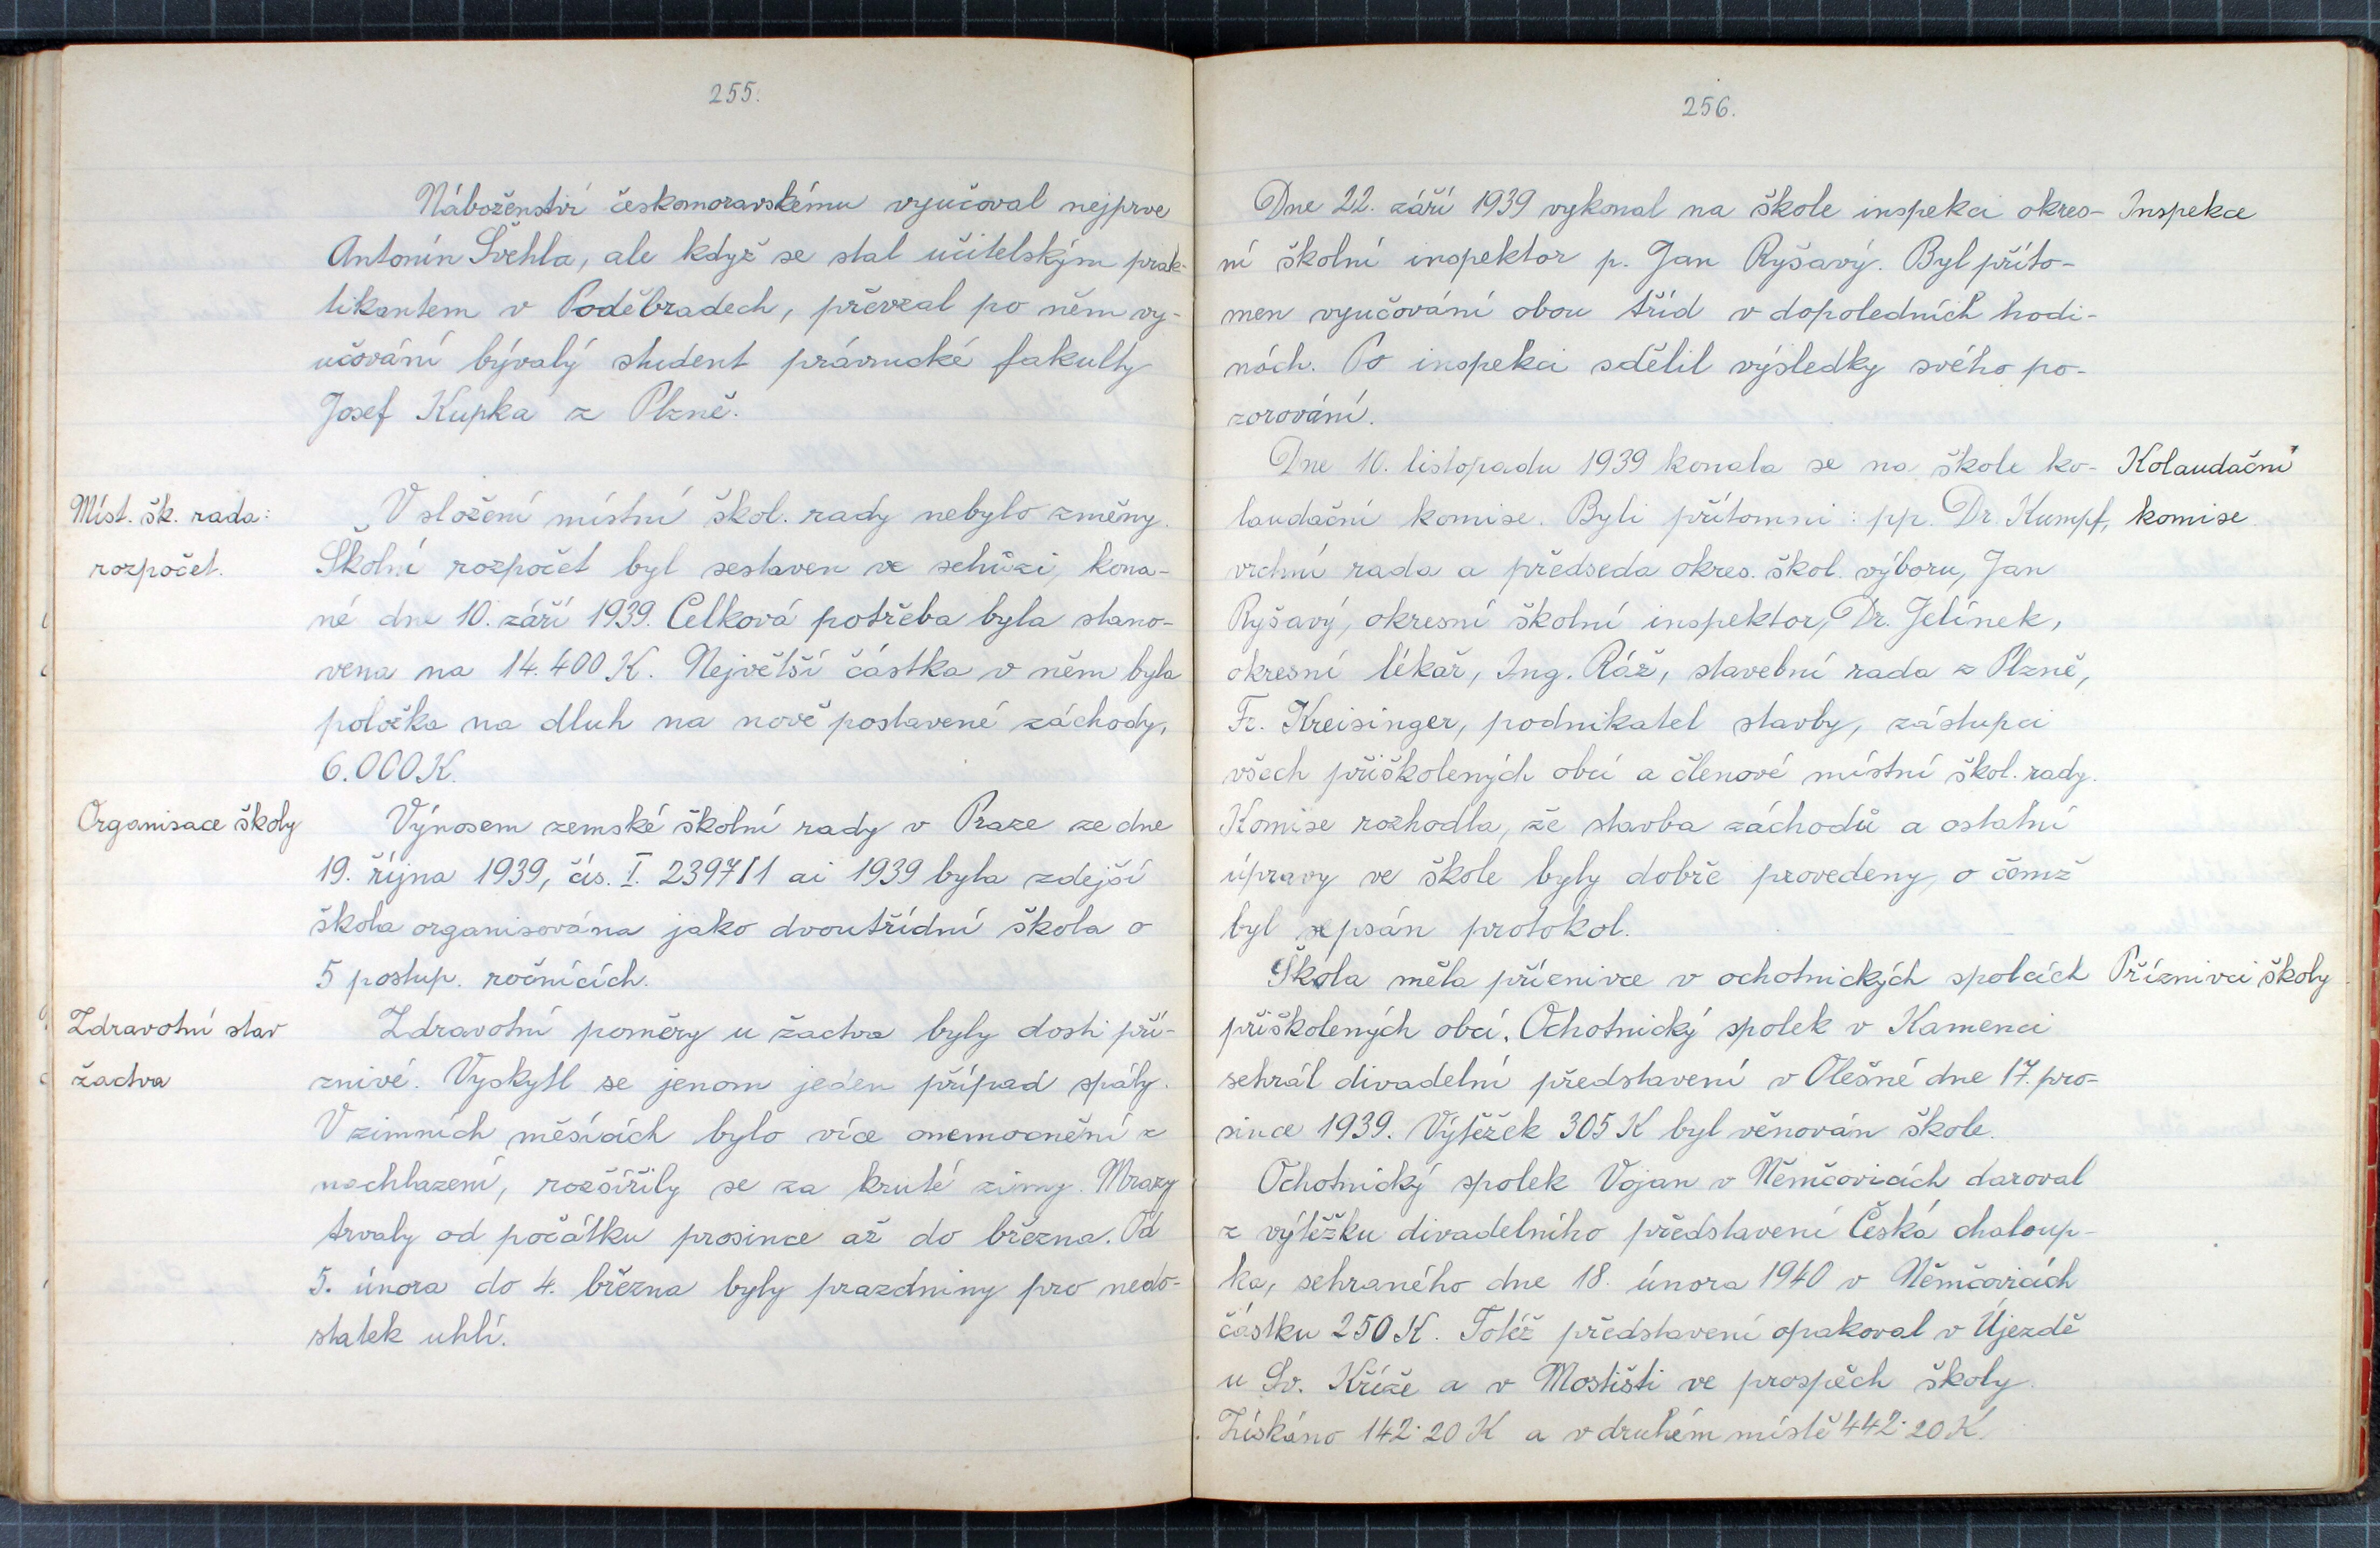 255.
Náboženství českomoravskému vyučoval nejprve
Antonín Švehla, ale když se stal učitelským prak-
tikantem v Poděbradech, převzal po něm vy-
učování bývalý student právnické fakulty
Josef Kupka z Plzně.
Míst. šk. rada:
rozpočet.
V složení místní škol. rady nebylo změny.
Školní rozpočet byl sestaven ve schůzi, kona-
né dne 10. září 1939. Celková potřeba byla stano-
vena na 14.400 K. Největší částka v něm byla
položka na dluh na nově postavené záchody,
6.000 K.
Organisace školy
Výnosem zemské školní rady v Praze ze dne
19. října 1939, čís. I. 2397/1 ai 1939 byla zdejší
škola organisována jako dvoutřídní škola o
5 postup. ročnících.
Zdravotní stav
žactva
Zdravotní poměry u žactva byly dosti pří-
znivé. Vyskytl se jenom jeden případ spály.
V zimních měsících bylo více onemocnění z
nachlazení, rozšířily se za kruté zimy. Mrazy
trvaly od počátku prosince až do března. Od
5. února do 4. března byly prazdniny pro nedo-
statek uhlí.
256.
Dne 22. září 1939 vykonal na škole inspekci okres-
ní školní inspektor p. Jan Ryšavý. Byl příto-
men vyučování obou tříd v dopoledních hodi-
nách. Po inspekci sdělil výsledky svého po-
zorování.
Inspekce
Dne 10. listopadu 1939 konala se na škole ko-
laudační komise. Byli přítomni: pp. Dr. Kumpf,
vrchní rada a předseda okres. škol. výboru, Jan
Ryšavý, okresní školní inspektor, Dr. Jelínek,
okresní lékař, Ing. Ráž, stavební rada z Plzně,
Fr. Kreisinger, podnikatel stavby, zástupci
všech přiškolených obcí a členové místní škol. rady.
Komise rozhodla, že stavba záchodů a ostatní
úpravy ve škole byly dobře provedeny, o čemž
byl sepsán protokol.
Kolaudační
komise
Škola měla příznivce v ochotnických spolcích
přiškolených obcí. Ochotnický spolek v Kamenci
sehrál divadelní představení v Olešné dne 17. pro-
since 1939. Výtěžek 305 K byl věnován škole.
Příznivci školy
Ochotnický spolek Vojan v Němčovicích daroval
z výtěžku divadelního představení Česká chaloup-
ka, sehraného dne 18. února 1940 v Němčovicích
částku 250 K. Totéž představení opakoval v Újezdě
u Sv. Kříže a v Mostišti ve prospěch školy.
Získáno 142·20 K a v druhém místě 442·20 K.